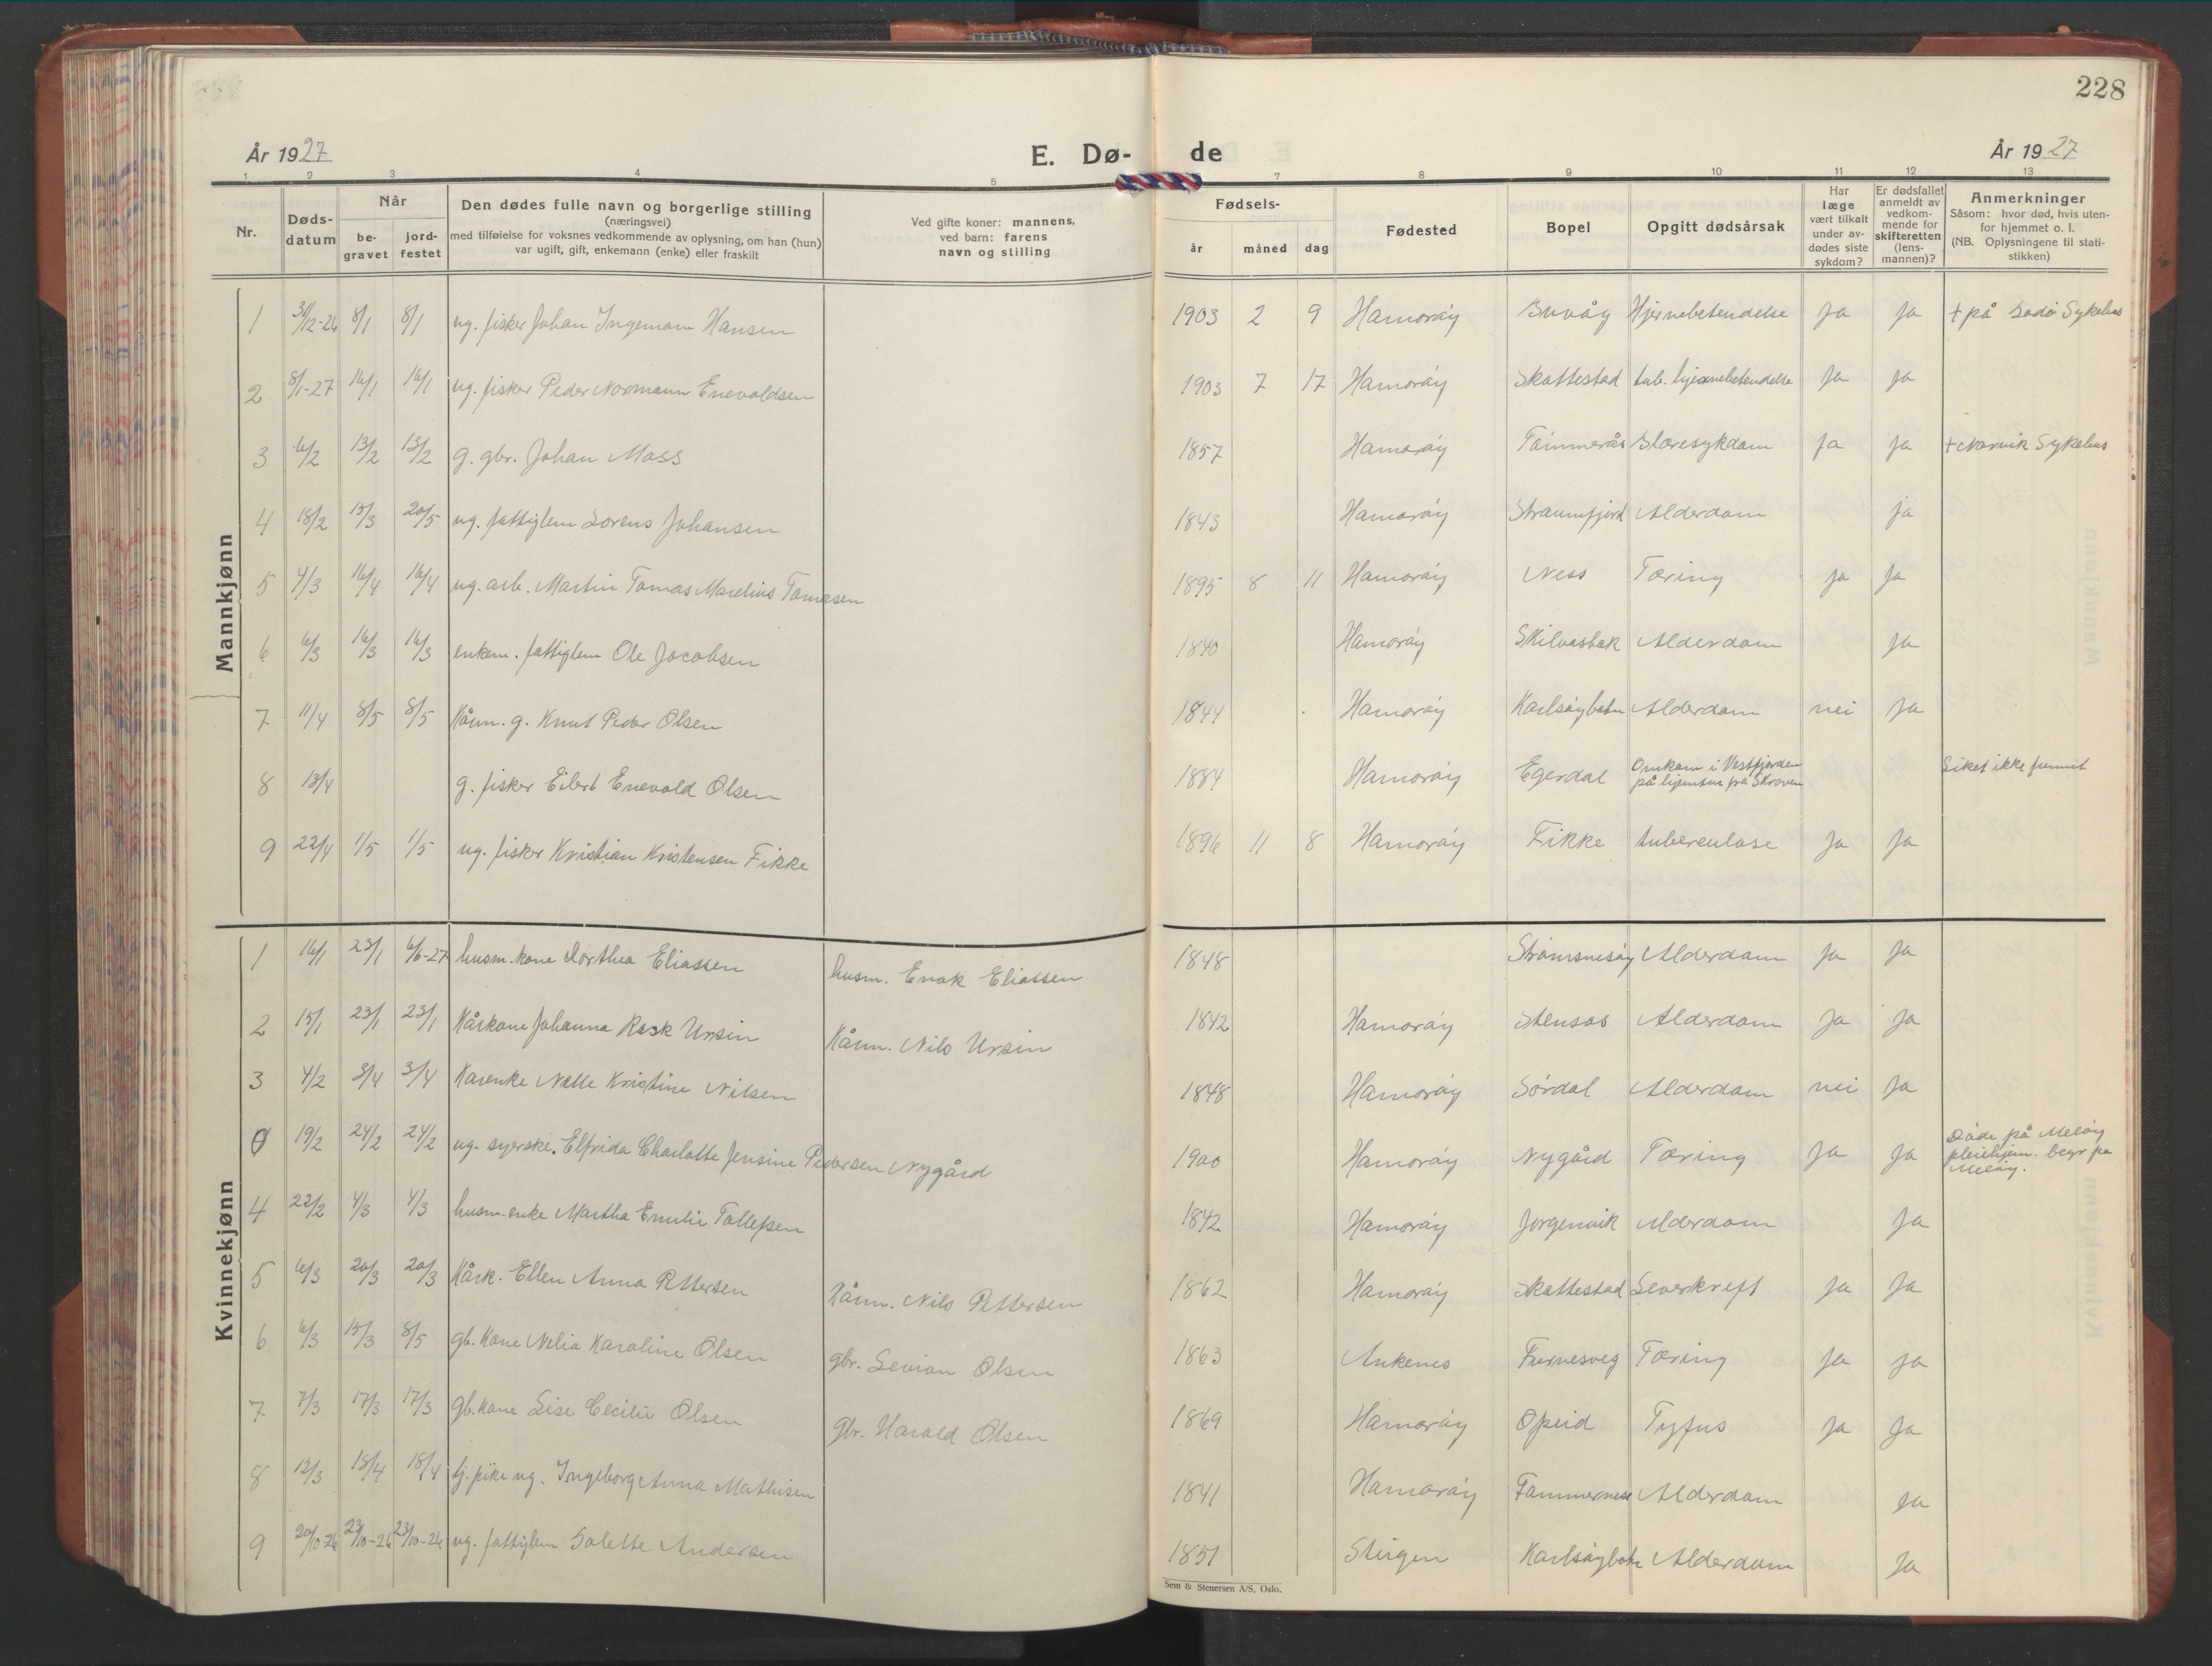 228
År 1927
E. Dø-
de
År 1927
1 2 3 4 5 7 8 9 10 11 12 13
Nr.
Døds-
datum
Når
be-
gravet
jord-
festet
Den dødes fulle navn og borgerlige stilling
(næringsvei)
med tilføielse for voksnes vedkommende av oplysning, om han (hun)
var ugift, gift, enkemann (enke) eller fraskilt
Ved gifte koner: mannens,
ved barn: farens
navn og stilling
Fødsels-
år måned dag
Fødested
Bopel
Opgitt dødsårsak
Har
læge
vært tilkalt
under av-
dødes siste
sykdom?
Er dødsfallet
anmeldt av
vedkom-
mende for
skifteretten
(lens-
mannen)?
Anmerkninger
Såsom: hvor død, hvis uten-
for hjemmet o. l.
(NB. Oplysningene til stati-
stikken)
Mannkjønn
1 31/12-26 8/1 8/1 ug. fisker Johan Ingemann Hansen 1903 2 9 Hamarøy Buvåg Hjernebetendelse Ja Ja + på Bodø Sykehus
2 8/1-27 16/1 16/1 ug. fisker Peder Normann Enevoldsen 1903 7 17 Hamarøy Skattestad tub. hjernebetendelse Ja Ja
3 6/2 13/2 13/2 g. gbr. Johan Mass 1857 Hamarøy Tømmerås Blæresykdom Ja Ja + Narvik Sykehus
4 18/2 15/3 20/5 ug. fattiglem Lorens Johansen 1843 Hamarøy Straumfjord Alderdom ja
5 4/3 16/4 16/4 ug. arb. Martin Tomas Marelius Tomasen 1895 8 11 Hamarøy Ness Tæring Ja Ja
6 6/3 16/3 16/3 enkem. fattiglem Ole Jacobsen 1840 Hamarøy Skilvasbak Alderdom Ja
7 11/4 8/5 8/5 Kårm. g. Knut Peder Olsen 1844 Hamarøy Karlsøybotn Alderdom nei Ja
8 13/4 g. fisker Eilert Enevold Olsen 1884 Hamarøy Egerdal Omkom i Vestfjorden
på hjemtur fra Skroven Liket ikke funnet
9 22/4 1/5 1/5 ug. fisker Kristian Kristensen Fikke 1896 11 8 Hamarøy Fikke tuberculose Ja Ja
Kvinnekjønn
1 16/1 23/1 6/6-27 husm. kone Dorthea Eliassen husm. Enok Eliassen 1848 Strømsnesøy Alderdom Ja Ja
2 15/1 23/1 23/1 Kårkone Johanna Rask Ursin Kårm. Nils Ursin 1842 Hamarøy Stensås Alderdom Ja Ja
3 4/2 3/4 3/4 Kårenke Nelle Kristine Nilsen 1848 Hamarøy Sørdal Alderdom nei Ja
0 19/2 24/2 24/2 ug. syerske. Elfrida Charlotte Jensine Pedersen Nygård 1900 Hamarøy Nygård Tæring Ja Ja Døde på Meløy
pleiehjem. begr på
Meløy.
4 22/2 4/3 4/3 husm. enke Martha Emilie Tollefsen 1842 Hamarøy Jørgenvik Alderdom Ja
5 6/3 20/3 20/3 Kårk. Ellen Anna Pettersen Kårm. Nils Pettersen 1862 Hamarøy Skattestad Leverkreft Ja Ja
6 6/3 15/3 8/5 gb. Kone Nelia Karoline Olsen gbr. Sevian Olsen 1863 Ankenes Furnesveg Tæring Ja Ja
7 7/3 17/3 17/3 gb. kone Lise Cecilie Olsen gbr. Harald Olsen 1869 Hamarøy Opeid Tyfus Ja Ja
8 12/3 18/4 18/4 tj. pike ug. Ingeborg Anna Mathisen 1841 Hamarøy Tømmernes Alderdom Ja
9 20/10-26 23/10-26 23/10-26 ug. fattiglem Golette Andersen 1851 Steigen Karlsøybotn Alderdom Ja
Sem & Stenersen A/S, Oslo.